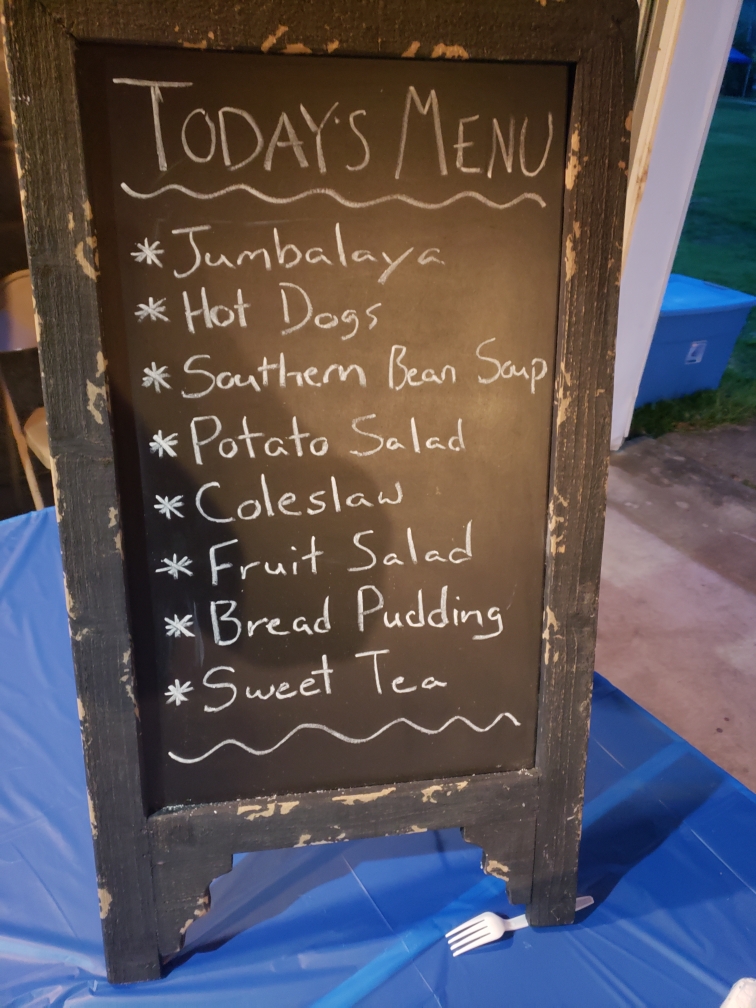 TODAY'S MENU
* Jumbalaya
* Hot Dogs
* Southern Bean Soup
* Potato Salad
* Coleslaw
* Fruit Salad
* Bread Pudding
* Sweet Tea